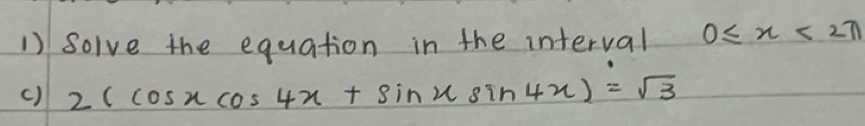 1) Solve the equation in the interval 0 ≤ x < 2π
c) 2 ( cos x cos 4x + sin x sin 4x ) = √3